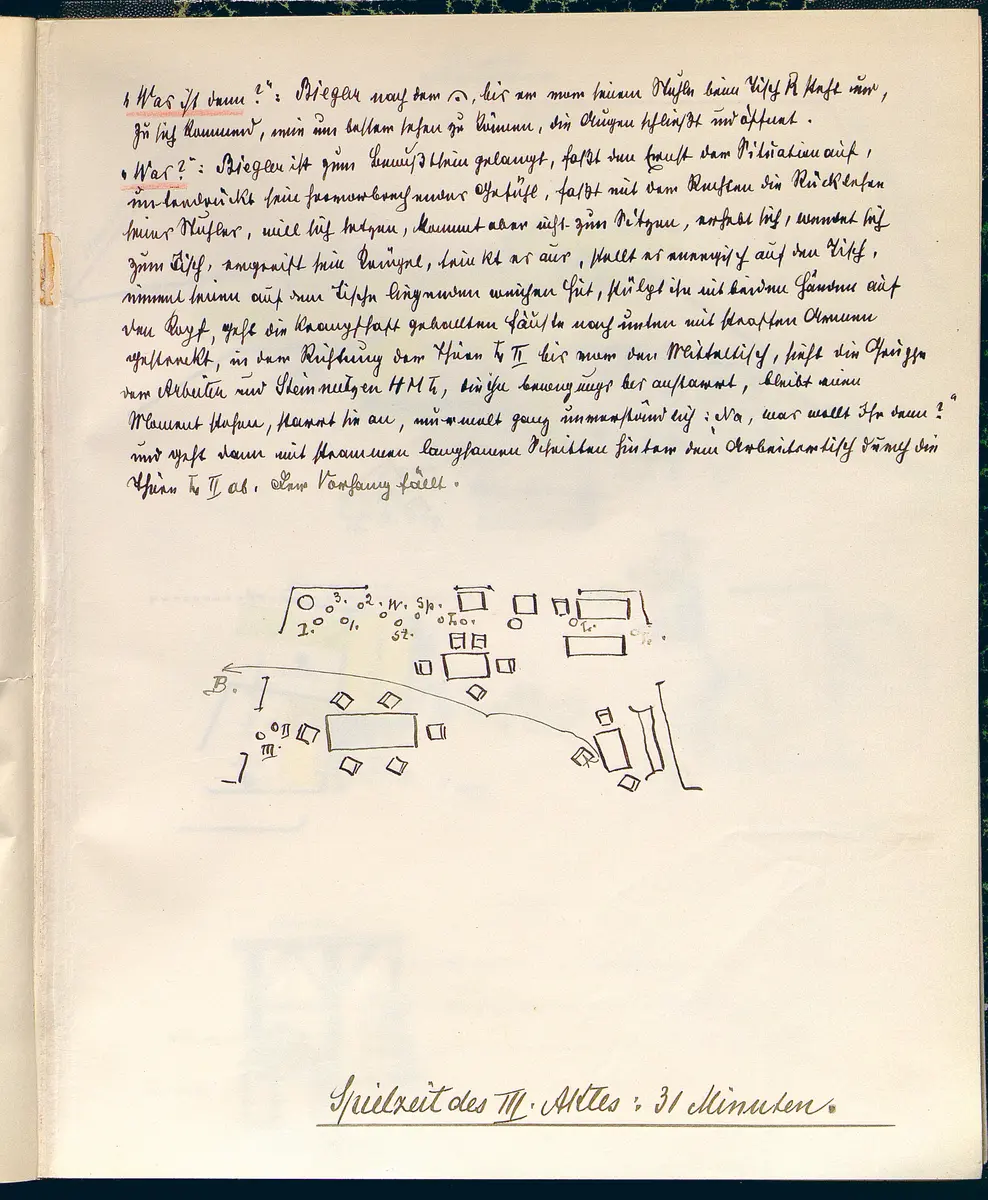 „Was ist denn?“: Biegler nach dem 𝄐, bis er vor seinem Stuhle beim Tisch R steht und,
zu sich kommend, wie um besser sehen zu können, die Augen schließt und öffnet.
„Was?“: Biegler ist zum Bewußtsein gelangt, faßt den Ernst der Situation auf,
unterdrückt sein hervorbrechendes Gefühl, faßt mit der Rechten die Rücklehne
seines Stuhles, will sich setzen, kommt aber nicht zum Sitzen, erhebt sich, wendet sich
zum Tisch, ergreift sein Krügel, trinkt es aus, stellt es energisch auf den Tisch,
nimmt seinen auf dem Tische liegenden weichen Hut, stülpt ihn mit beiden Händen auf
den Kopf, geht die krampfhaft geballten Fäuste nach unten mit straffen Armen
gestreckt, in der Richtung der Thüre L II bis vor den Mitteltisch, sieht die Gruppe
der Arbeiter und Steinmetzen H M L, die ihn bewegungslos anstarrt, bleibt einen
Moment stehen, starrt sie an, murmelt ganz unverständlich: „Na, was wollt Ihr denn?“
und geht dann mit strammen langsamen Schritten hinter dem Arbeitertisch durch die
Thüre L II ab. Der Vorhang fällt.
3. 2. W. Sp.
I. 1. St. Lo. L.
B.
II
III.
Spielzeit des III. Aktes: 31 Minuten.